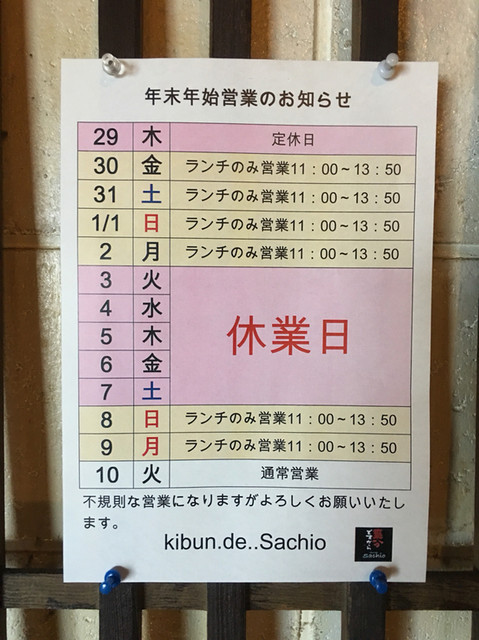 年末年始営業のお知らせ
29 木 定休日
30 金 ランチのみ営業11：00～13：50
31 土 ランチのみ営業11：00～13：50
1/1 日 ランチのみ営業11：00～13：50
2 月 ランチのみ営業11：00～13：50
3 火
4 水
5 木 休業日
6 金
7 土
8 日 ランチのみ営業11：00～13：50
9 月 ランチのみ営業11：00～13：50
10 火 通常営業
不規則な営業になりますがよろしくお願いいたし
ます。
kibun.de..Sachio
Sachio